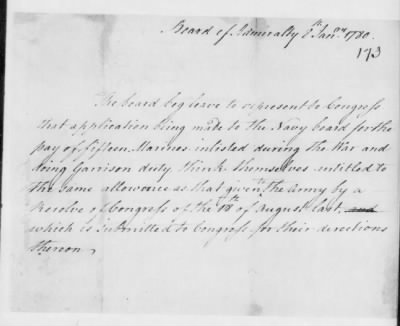 Board of Admiralty 8th Janry 1780.
173
The board beg leave to represent to Congress
that application being made to the Navy board for the
pay of fifteen Marines inlisted during the War and
doing Garrison duty, think themselves entitled to
the same allowance as that given to the Army by a
Resolve of Congress of the 18th of August last, and
which is submitted to Congress for their directions
thereon,